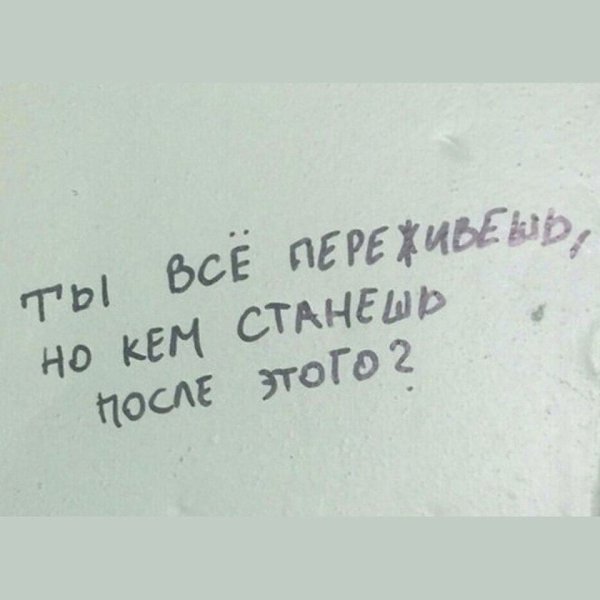 ТЫ ВСЁ ПЕРЕЖИВЕШЬ,
НО КЕМ СТАНЕШЬ
ПОСЛЕ ЭТОГО?